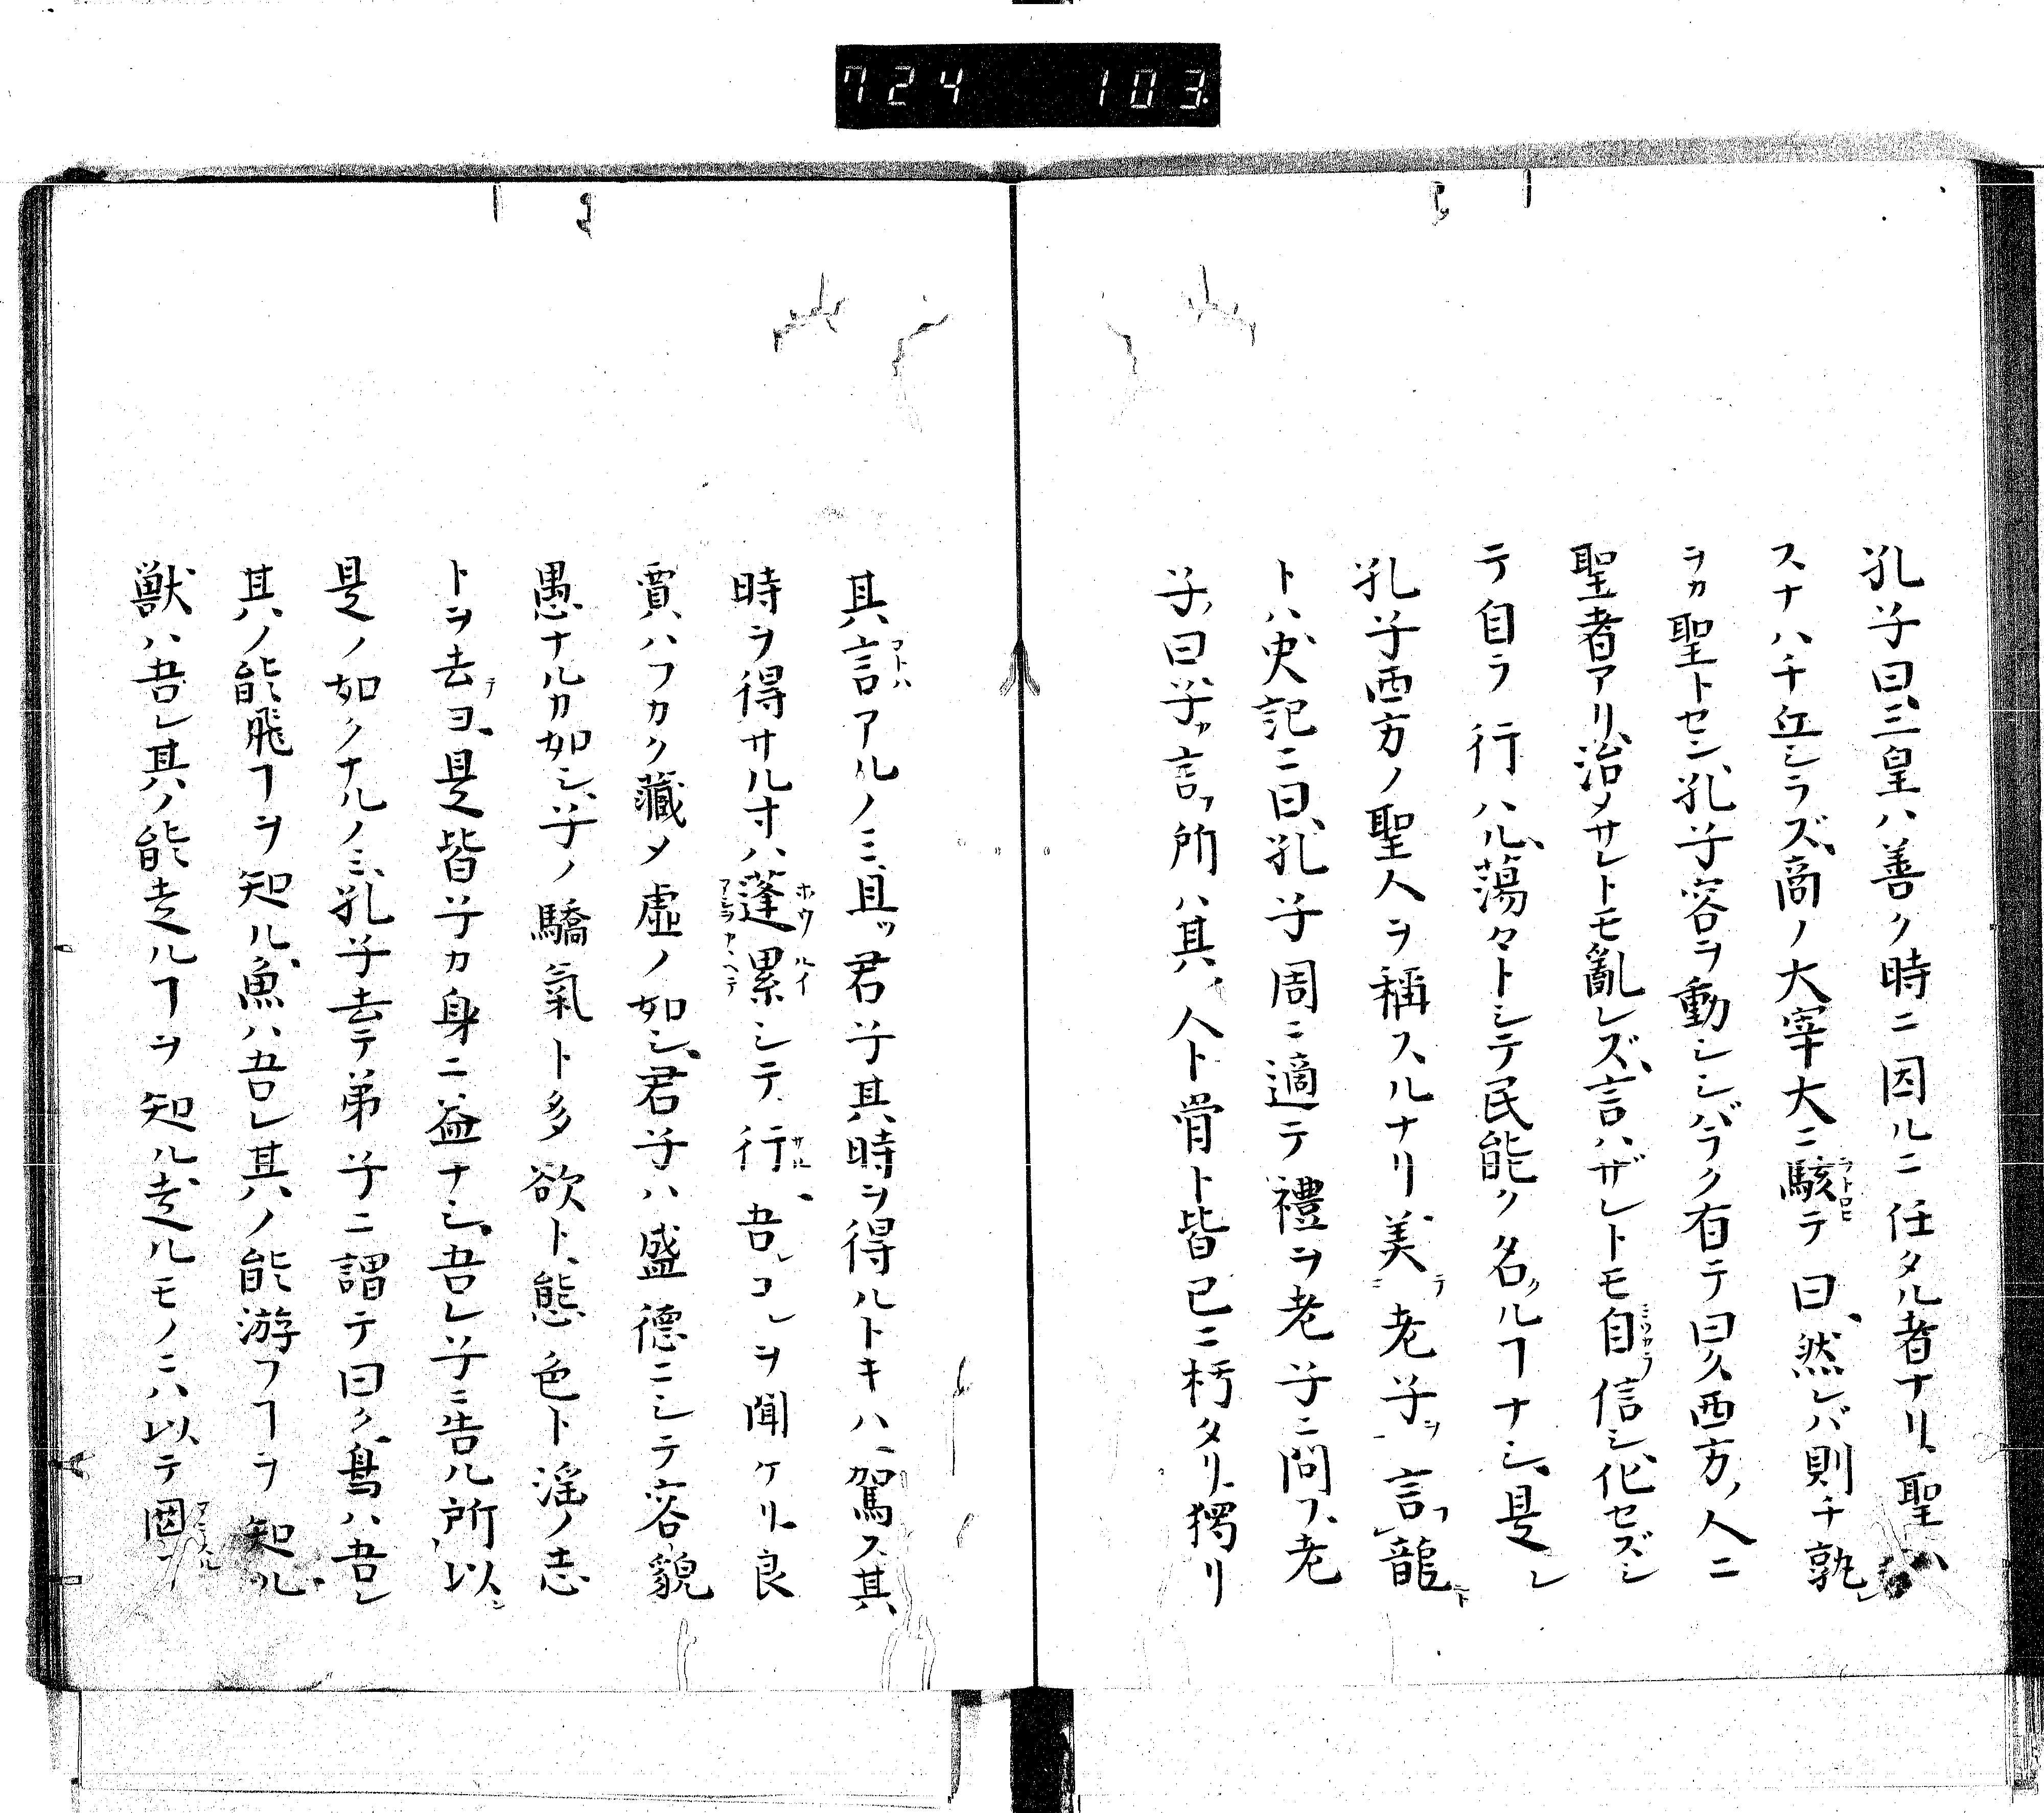 724 103.
孔子曰、三皇ハ善ク時ニ因ルニ任タル者ナリ、聖ハ
スナハチ丘シラズ、商ノ大宰大ニ駭テ曰、然レバ則チ孰レ
ヲカ聖トセン、孔子容ヲ動シシバラク有テ曰ク西方ノ人ニ
聖者アリ、治メサレトモ亂レズ、言ハザレトモ自ミツカラ信シ、化セズシ
テ自ラ行ハル、蕩々トシテ民能ク名クルヿナシ、是レ
孔子西方ノ聖人ヲ稱スルナリ美テ老子ヲ言フ龍ト
トハ、史記ニ曰、孔子周ニ適テ禮ヲ老子ニ問フ、老
子ノ曰、子カ言フ所ハ其人ト骨ト皆已ニ朽タリ、獨リ
其言コトハアルノミ、且ツ君子其時ヲ得ルトキハ、駕ス其
時ヲ得サル寸ハ、蓬累ホウルイシテ行サル、吾レコレヲ聞ケリ、良
賈ハフカク藏メ虛ノ如シ、君子ハ盛德ニシテ容貌
愚ナルカ如シ、子ノ驕氣ト多欲ト、態色ト淫ノ志
トヲ去テヨ、是皆子カ身ニ益ナシ、吾レ子ニ告ル所以ン
是ノ如クナルノミ、孔子去テ弟子ニ謂テ曰ク、鳥ハ吾レ
其ノ能飛フヿヲ知ル、魚ハ吾レ其ノ能游フヿヲ知ル、
獸ハ吾レ其ノ能走ルヿヲ知ル、走ルモノニハ以テ